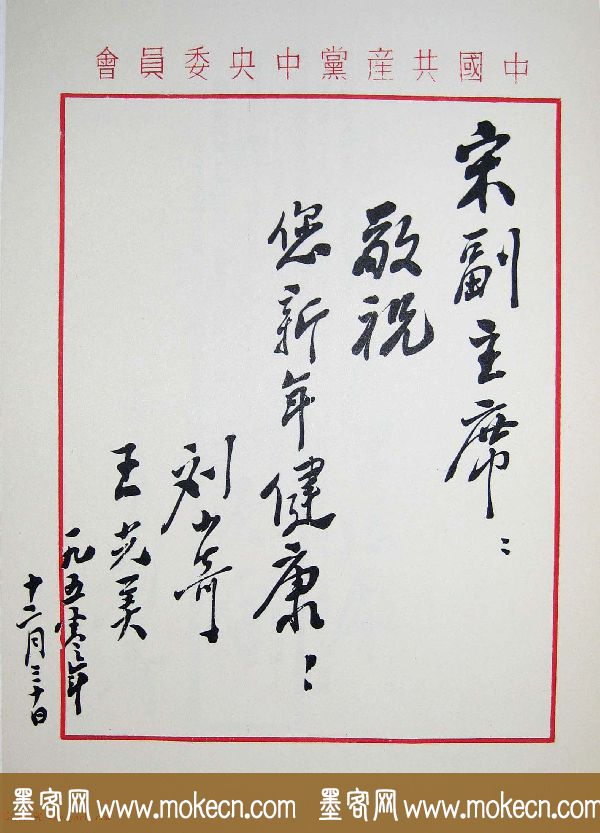 中國共産黨中央委員會
宋副主席：
敬祝
您新年健康！
刘少奇
王光美
一九五零年
十二月三十日
墨客网 www.mokecn.com 墨客网 www.mokecn.com